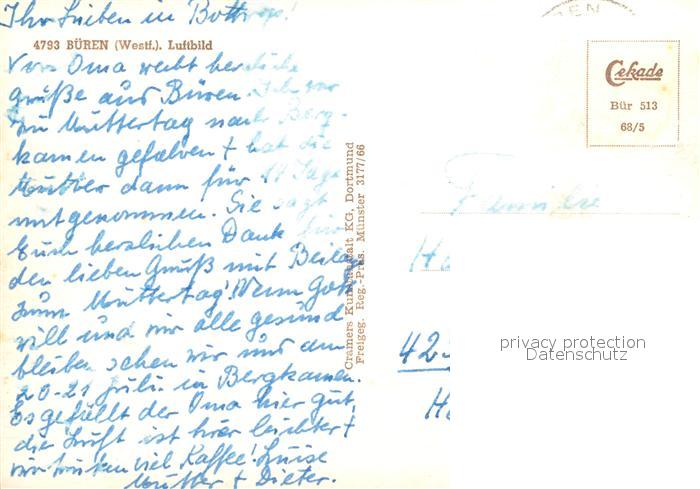 Ihr Lieben in Bottrop!
4793 BÜREN (Westf.). Luftbild
Von Oma recht herzliche
Grüße aus Büren. Ich war
zu Muttertag nach Berg-
kamen gefahren + hat die
Mutter dann für 14 Tage
mitgenommen. Sie sagt
Euch herzlichen Dank für
den lieben Gruß mit Beilage
zum Muttertag! Wenn Gott
will und wir alle gesund
bleiben sehen wir uns am
20-21 Juli in Bergkamen.
Es gefällt der Oma hier gut,
die Luft ist hier leichter +
wir trinken viel Kaffee! Luise
Mutter + Dieter.
Cramers Kunstanstalt KG, Dortmund
Freigeg. Reg.-Präs. Münster 3177/66
Cekade
Bür 513
68/5
Familie
42
privacy protection
Datenschutz